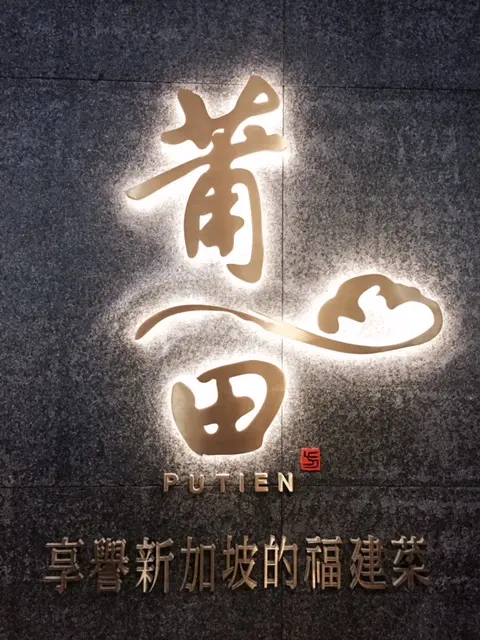 莆
田
PUTIEN
享譽新加坡的福建菜